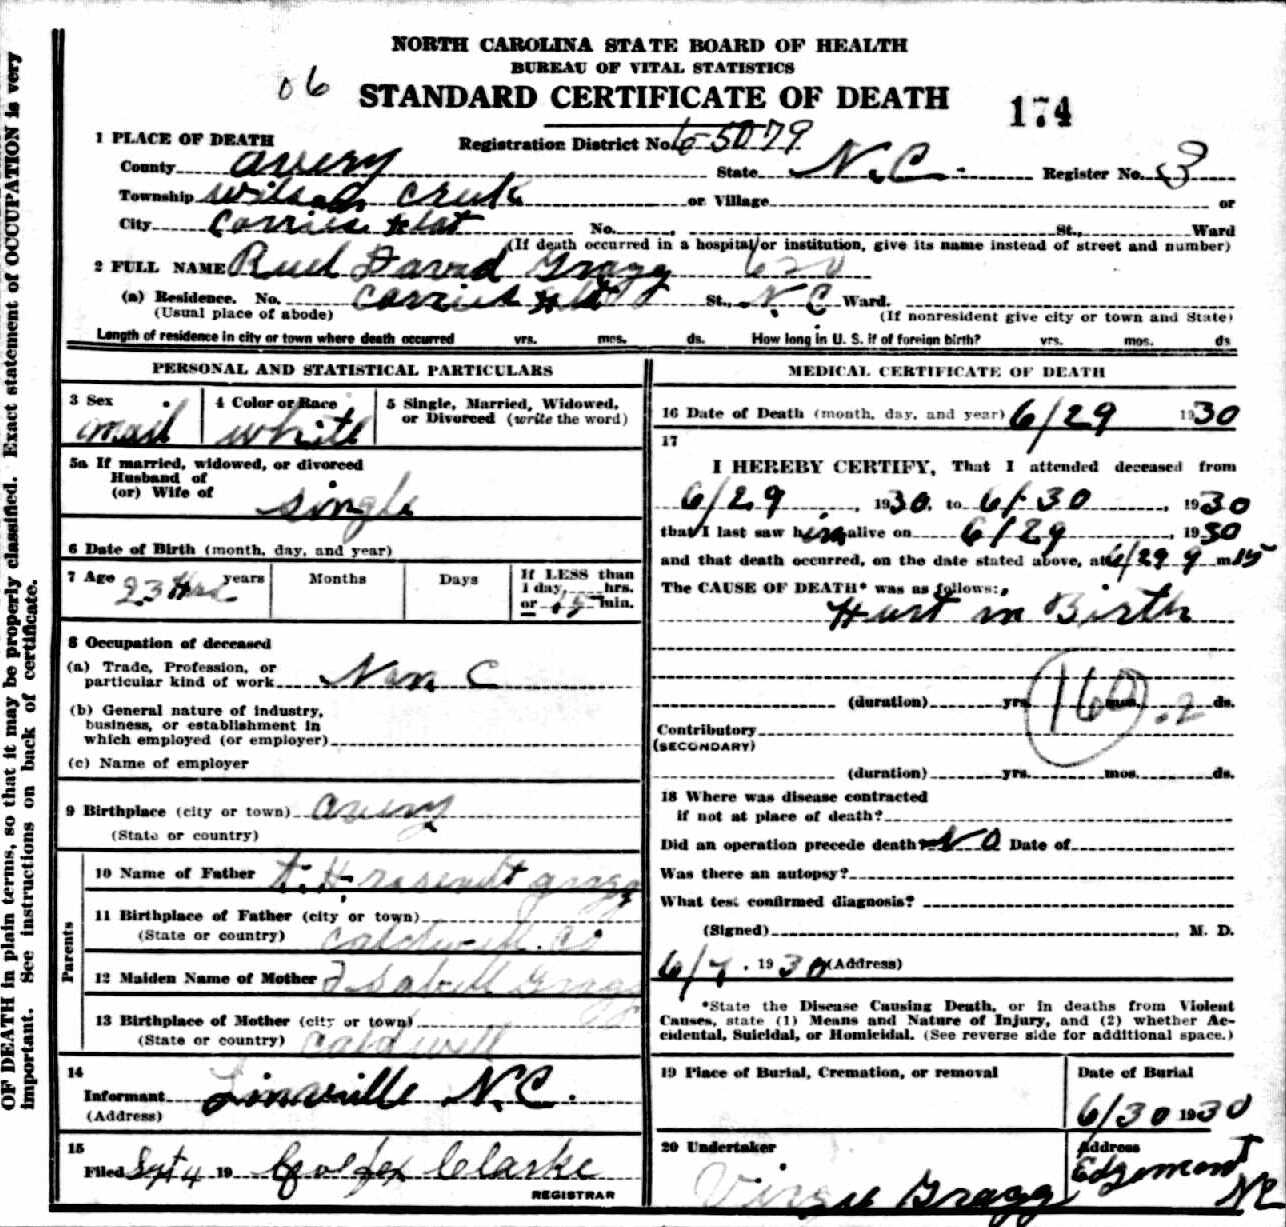 NORTH CAROLINA STATE BOARD OF HEALTH
BUREAU OF VITAL STATISTICS
06 STANDARD CERTIFICATE OF DEATH 174
1 PLACE OF DEATH Registration District No. 6-5079
County Avery State N.C. Register No. 3
Township Wilson Creek or Village or
City Carries Flat No. St., Ward
(If death occurred in a hospital or institution, give its name instead of street and number)
2 FULL NAME Ruel David Gragg 620
(a) Residence. No. Carries Flat St., N.C Ward.
(Usual place of abode) (If nonresident give city or town and State)
Length of residence in city or town where death occurred yrs. mos. ds. How long in U. S. if of foreign birth? yrs. mos. ds
PERSONAL AND STATISTICAL PARTICULARS
3 Sex
mail
4 Color or Race
white
5 Single, Married, Widowed,
or Divorced (write the word)
5a If married, widowed, or divorced
Husband of
(or) Wife of
single
6 Date of Birth (month, day, and year)
7 Age 23 Hrs years Months Days
If LESS than
1 day, hrs.
or 15 min.
8 Occupation of deceased
(a) Trade, Profession, or
particular kind of work
(b) General nature of industry,
business, or establishment in
which employed (or employer)
(c) Name of employer
9 Birthplace (city or town) Avery
(State or country)
Parents
10 Name of Father Gragg
11 Birthplace of Father (city or town)
(State or country) Caldwell. Co
12 Maiden Name of Mother Isabell Gragg
13 Birthplace of Mother (city or town)
(State or country) Caldwell
14
Informant Linaville N.C.
(Address)
15
Filed Sept 4 19 Colfex Clarke
REGISTRAR
MEDICAL CERTIFICATE OF DEATH
16 Date of Death (month, day, and year) 6/29 1930
17
I HEREBY CERTIFY, That I attended deceased from
6/29, 1930, to 6/30, 1930
that I last saw him alive on 6/29, 1930
and that death occurred, on the date stated above, at 6/29 9 m 15
The CAUSE OF DEATH* was as follows:
Hurt in Birth
(duration) yrs. mos. ds.
160.2
Contributory
(SECONDARY)
(duration) yrs. mos. ds.
18 Where was disease contracted
if not at place of death?
Did an operation precede death? NO Date of
Was there an autopsy?
What test confirmed diagnosis?
(Signed) , M. D.
6/7, 1930 (Address)
*State the Disease Causing Death, or in deaths from Violent
Causes, state (1) Means and Nature of Injury, and (2) whether Ac-
cidental, Suicidal, or Homicidal. (See reverse side for additional space.)
19 Place of Burial, Cremation, or removal
Date of Burial
6/30 1930
20 Undertaker
Gragg
Address
Edgemont
NC
OF DEATH in plain terms, so that it may be properly classified. Exact statement of OCCUPATION is very
important. See instructions on back of certificate.